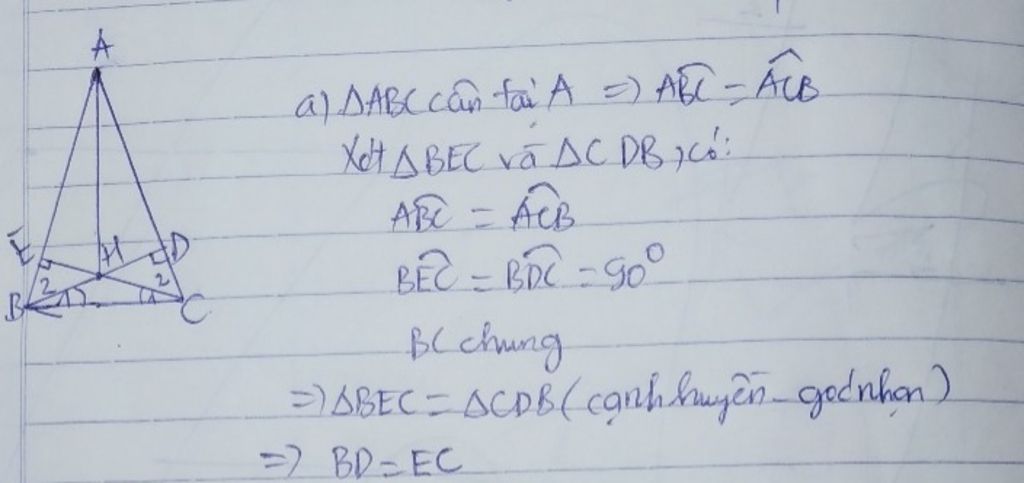 A
a) ΔABC cân tại A => ABC^ = ACB^
Xét ΔBEC và ΔCDB, có:
ABC^ = ACB^
E H D
BEC^ = BDC^ = 90°
2 2
B 1 1 C
BC chung
=> ΔBEC = ΔCDB (cạnh huyền - góc nhọn)
=> BD = EC